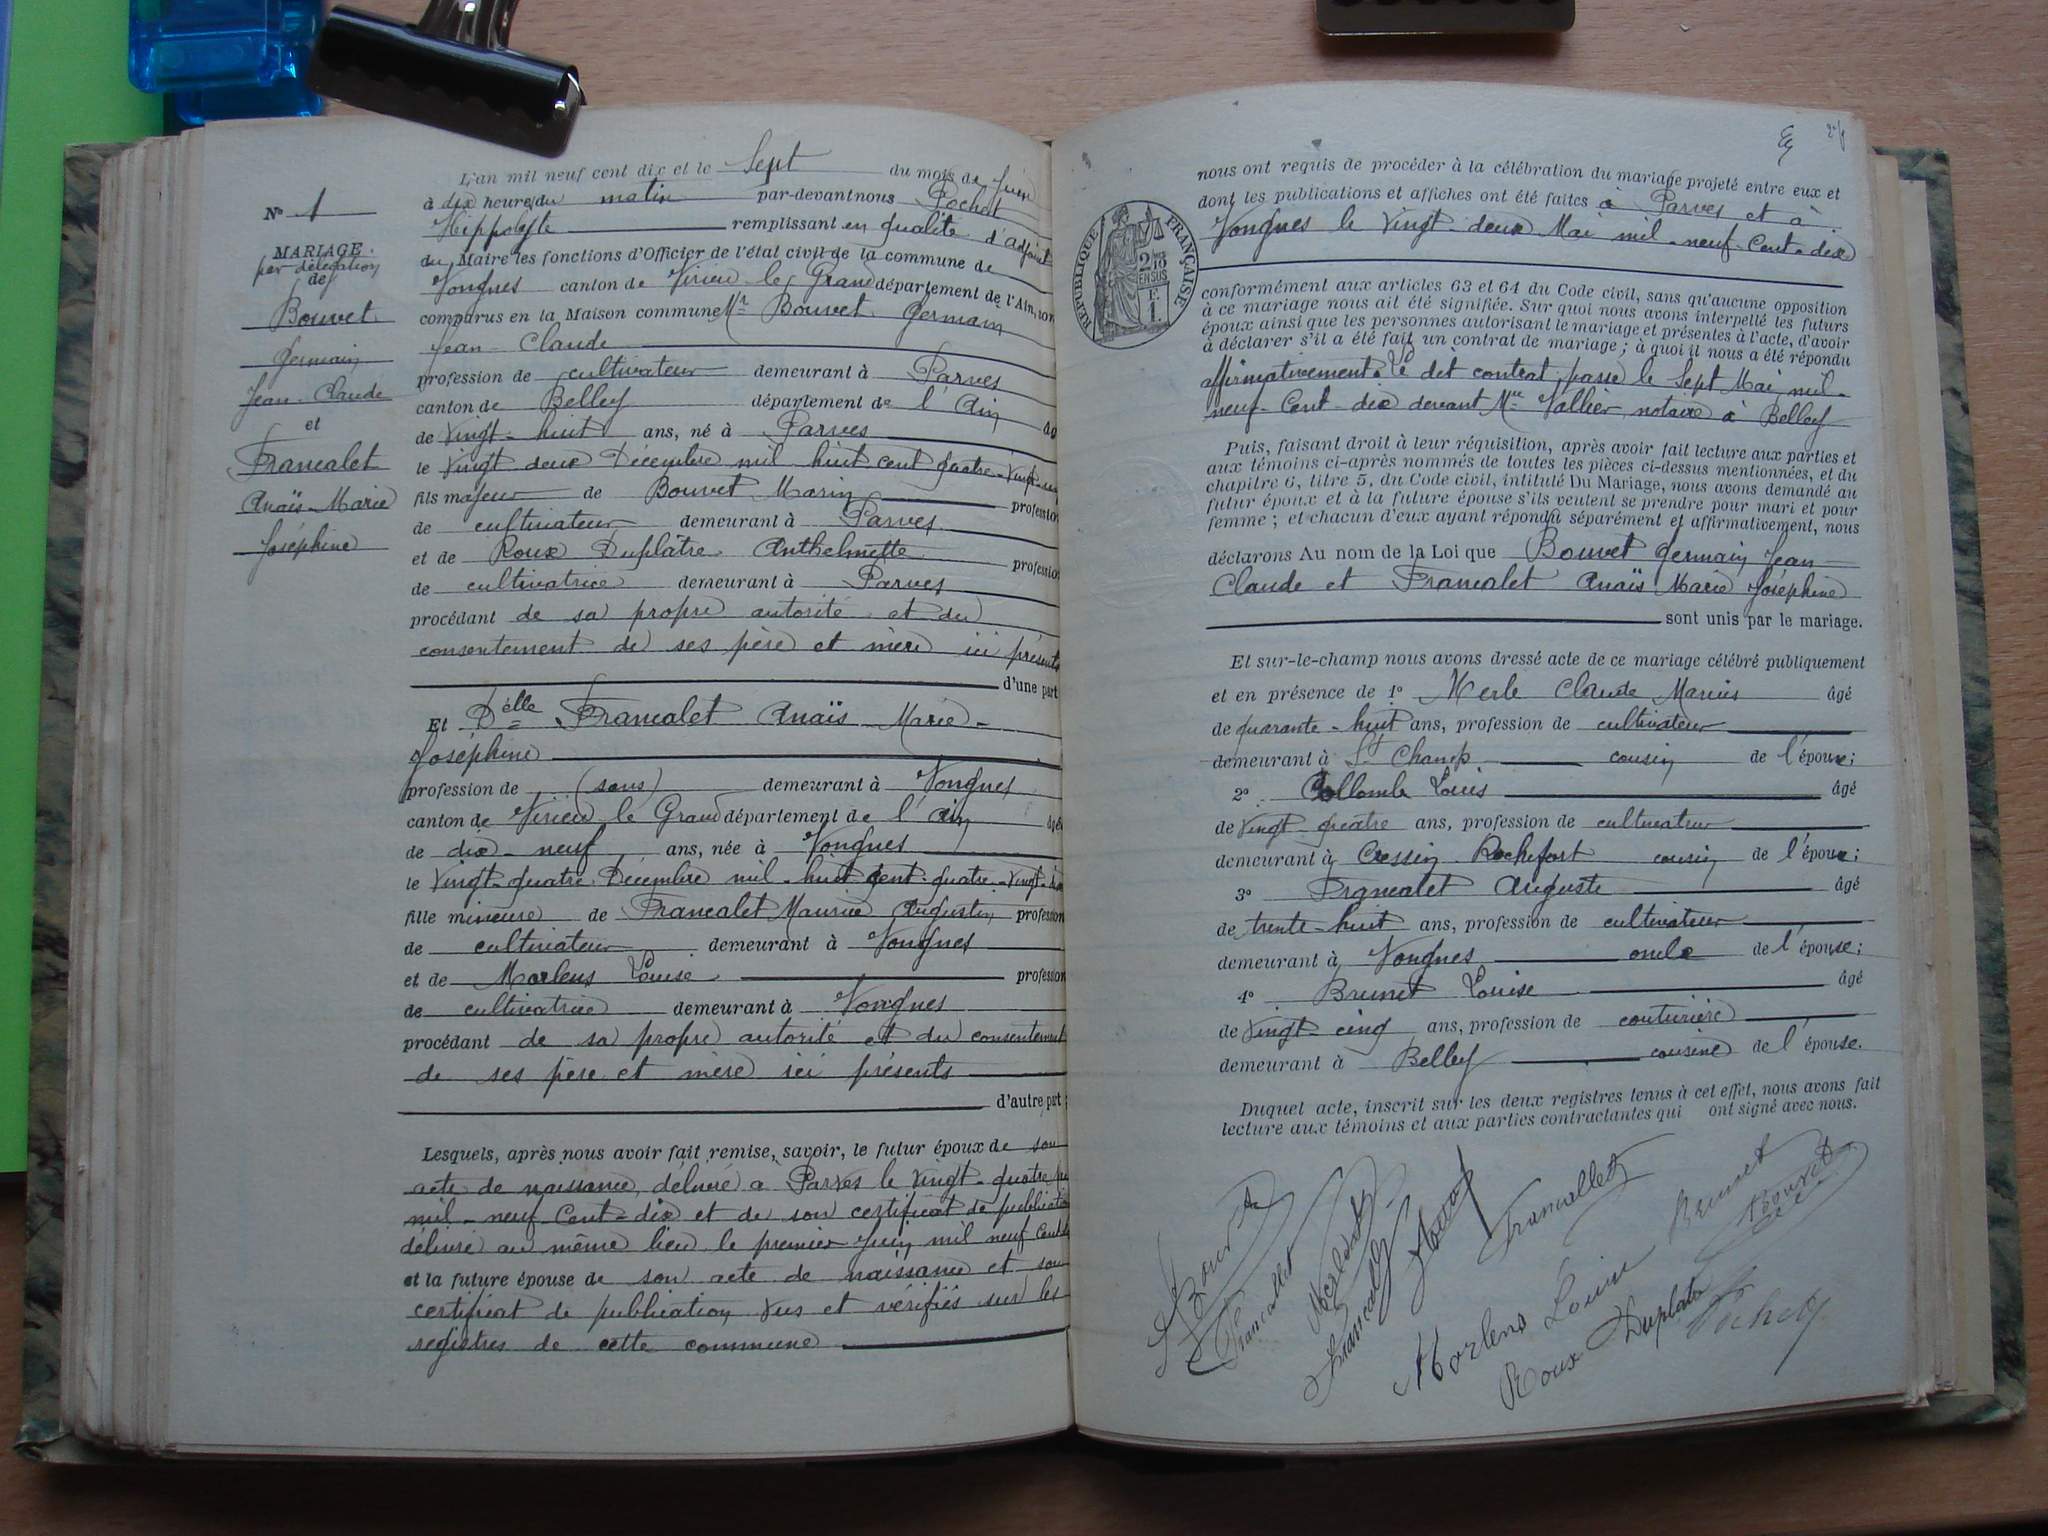 N° 1
MARIAGE
par délégation
de
Bouvet
Germain
Jean-Claude
et
Francalet
Anaïs-Marie
Joséphine
L'an mil neuf cent dix et le Sept du mois de Juin
à dix heures du matin par-devant nous Pochet
Hippolyte remplissant en qualité d'adjoint
du Maire les fonctions d'Officier de l'état civil de la commune de
Vongnes canton de Virieu le Grand département de l'Ain, sont
comparus en la Maison commune Mr Bouvet Germain
Jean-Claude
profession de cultivateur demeurant à Parves
canton de Belley département de l'Ain âgé
de Vingt-huit ans, né à Parves
le Vingt deux Décembre mil huit cent quatre-Vingt-un
fils majeur de Bouvet Marin profession
de cultivateur demeurant à Parves
et de Roux Duplâtre Anthelmette profession
de cultivatrice demeurant à Parves
procédant de sa propre autorité et du
consentement de ses père et mère ici présents
d'une part
Et Délle Francalet Anaïs Marie-
Joséphine
profession de (sans) demeurant à Vongnes
canton de Virieu le Grand département de l'Ain âgée
de dix-neuf ans, née à Vongnes
le Vingt-quatre Décembre mil-huit cent-quatre-Vingt-dix
fille mineure de Francalet Maurice Augustin profession
de cultivateur demeurant à Vongnes
et de Morlens Louise profession
de cultivatrice demeurant à Vongnes
procédant de sa propre autorité et du consentement
de ses père et mère ici présents
d'autre part ;
Lesquels, après nous avoir fait remise, savoir, le futur époux de son
acte de naissance, délivré à Parves le Vingt-quatre
mil-neuf-Cent-dix et de son certificat de publication
délivré au même lieu le premier Juin mil neuf Cent
et la future épouse de son acte de naissance et son
certificat de publication vus et vérifiés sur les
registres de cette commune
nous ont requis de procéder à la célébration du mariage projeté entre eux et
dont les publications et affiches ont été faites à Parves et à
Vongnes le Vingt-deux Mai mil-neuf-Cent-dix
RÉPUBLIQUE FRANÇAISE
2/10 EN SUS
E.
1.
conformément aux articles 63 et 64 du Code civil, sans qu'aucune opposition
à ce mariage nous ait été signifiée. Sur quoi nous avons interpellé les futurs
époux ainsi que les personnes autorisant le mariage et présentes à l'acte, d'avoir
à déclarer s'il a été fait un contrat de mariage ; à quoi il nous a été répondu
affirmativement. Le dit contrat passé le Sept Mai mil-
neuf-Cent-dix devant Me Vallier, notaire à Belley
Puis, faisant droit à leur réquisition, après avoir fait lecture aux parties et
aux témoins ci-après nommés de toutes les pièces ci-dessus mentionnées, et du
chapitre 6, titre 5, du Code civil, intitulé Du Mariage, nous avons demandé au
futur époux et à la future épouse s'ils veulent se prendre pour mari et pour
femme ; et chacun d'eux ayant répondu séparément et affirmativement, nous
déclarons Au nom de la Loi que Bouvet Germain Jean-
Claude et Francalet Anaïs Marie Joséphine
sont unis par le mariage.
Et sur-le-champ nous avons dressé acte de ce mariage célébré publiquement
et en présence de 1° Merle Claude Marius âgé
de quarante-huit ans, profession de cultivateur
demeurant à St Champ cousin de l'époux ;
2° Collomb Louis âgé
de Vingt-quatre ans, profession de cultivateur
demeurant à Cressin-Rochefort cousin de l'époux ;
3° Francalet Auguste âgé
de trente-huit ans, profession de cultivateur
demeurant à Vongnes oncle de l'épouse ;
4° Brunet Louise âgé
de Vingt cinq ans, profession de couturière
demeurant à Belley cousine de l'épouse.
Duquel acte, inscrit sur les deux registres tenus à cet effet, nous avons fait
lecture aux témoins et aux parties contractantes qui ont signé avec nous.
Bouvet
Francallet
Francallet
Francallet
Brunet
Bouvet
Morlens Louise
Roux Duplatre
Pochet